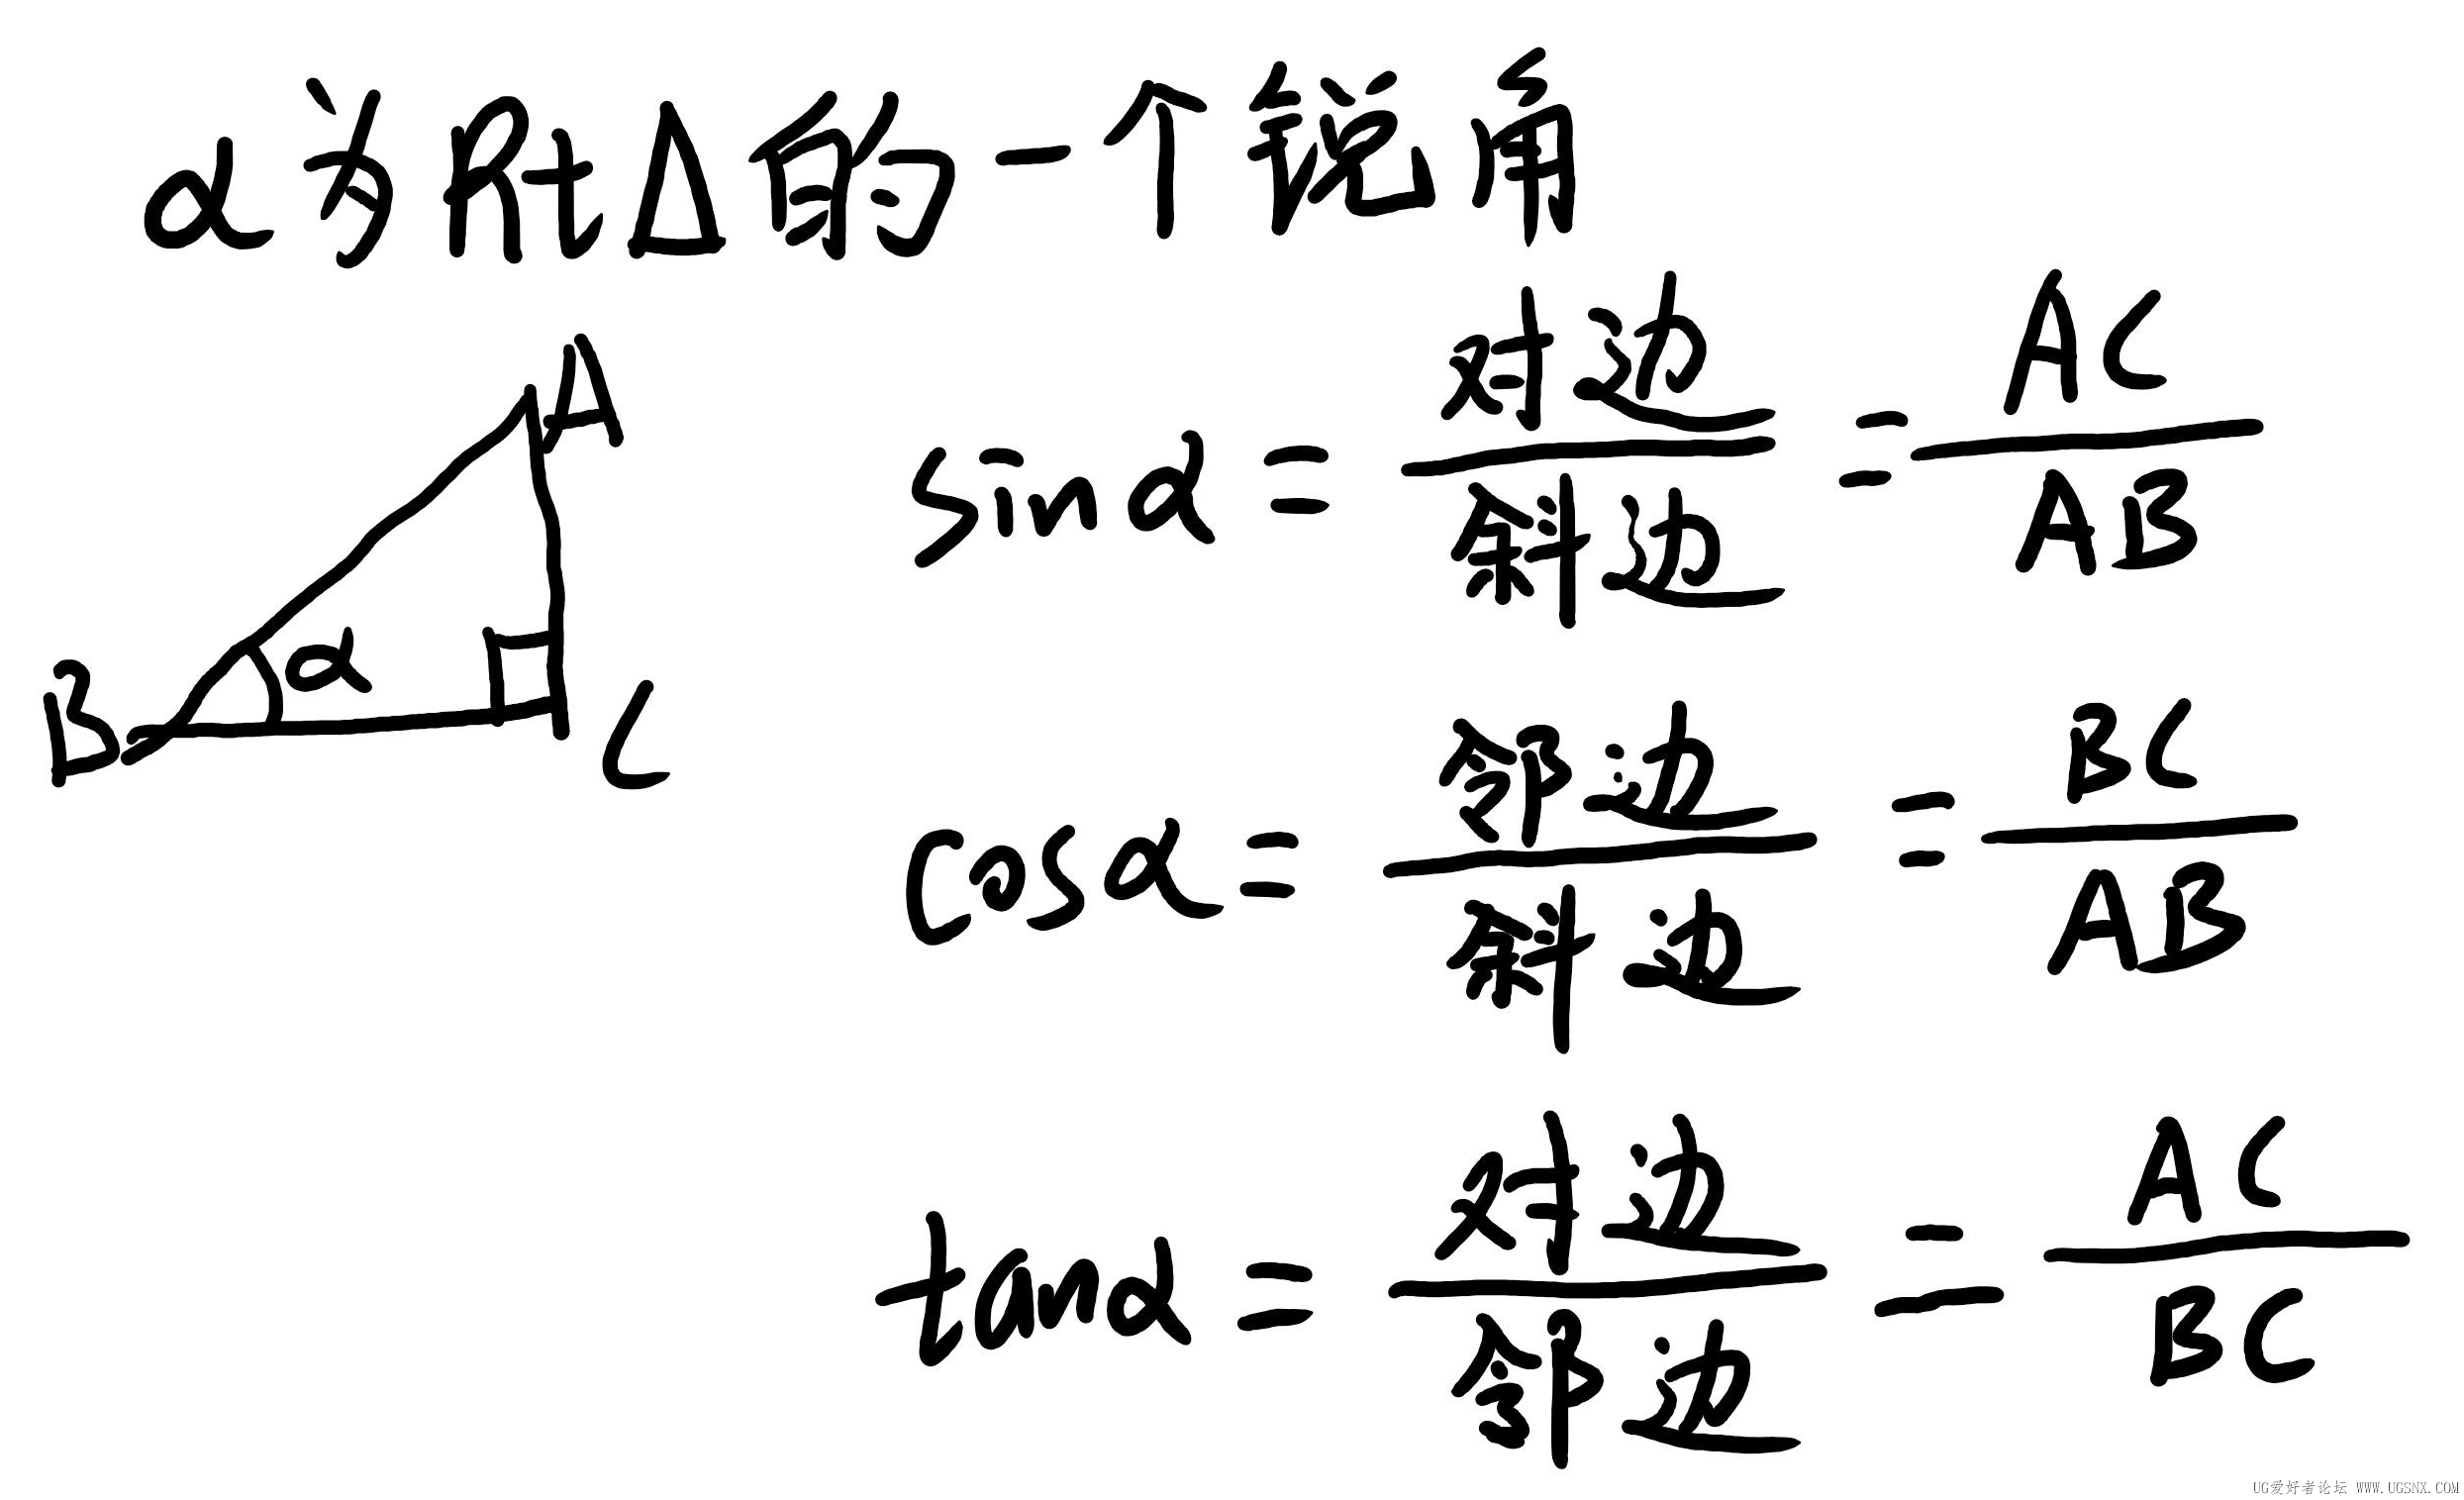 α为Rt△的一个锐角
A
B
α
C
sinα = 对边/斜边 = AC/AB
cosα = 邻边/斜边 = BC/AB
tanα = 对边/邻边 = AC/BC
UG爱好者论坛 WWW.UGSNX.COM